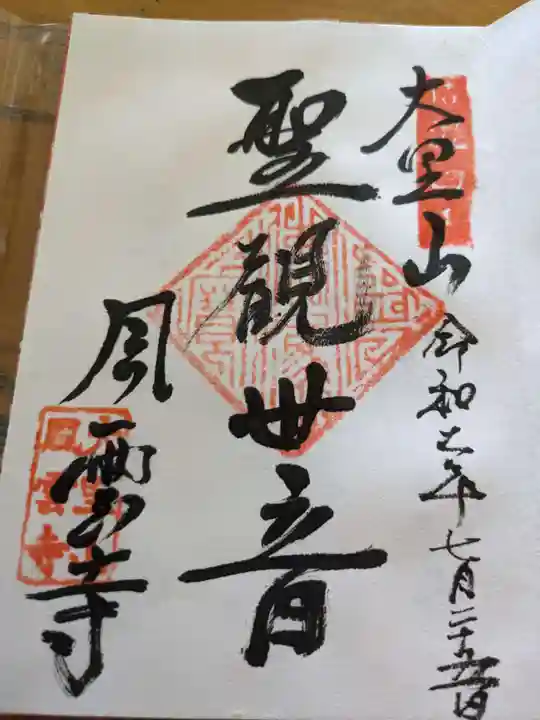 大里山
令和 年七月二十五日
聖観世音
風雲寺